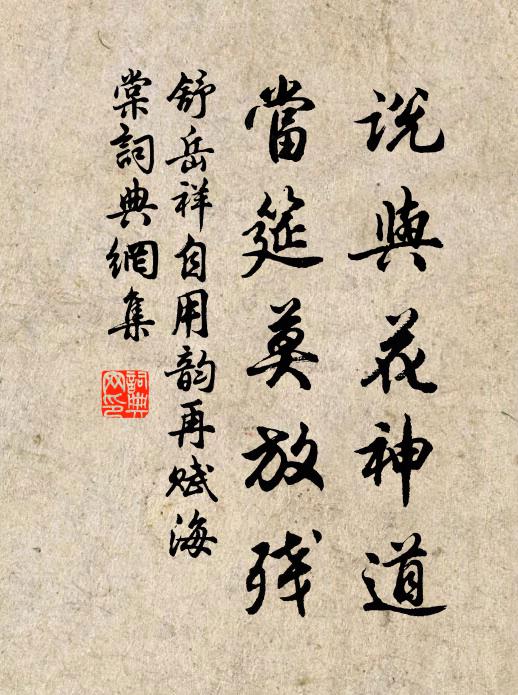 説與花神道
當筵莫放残
舒岳祥自用韵再赋海
棠詞典網集
詞典
网印